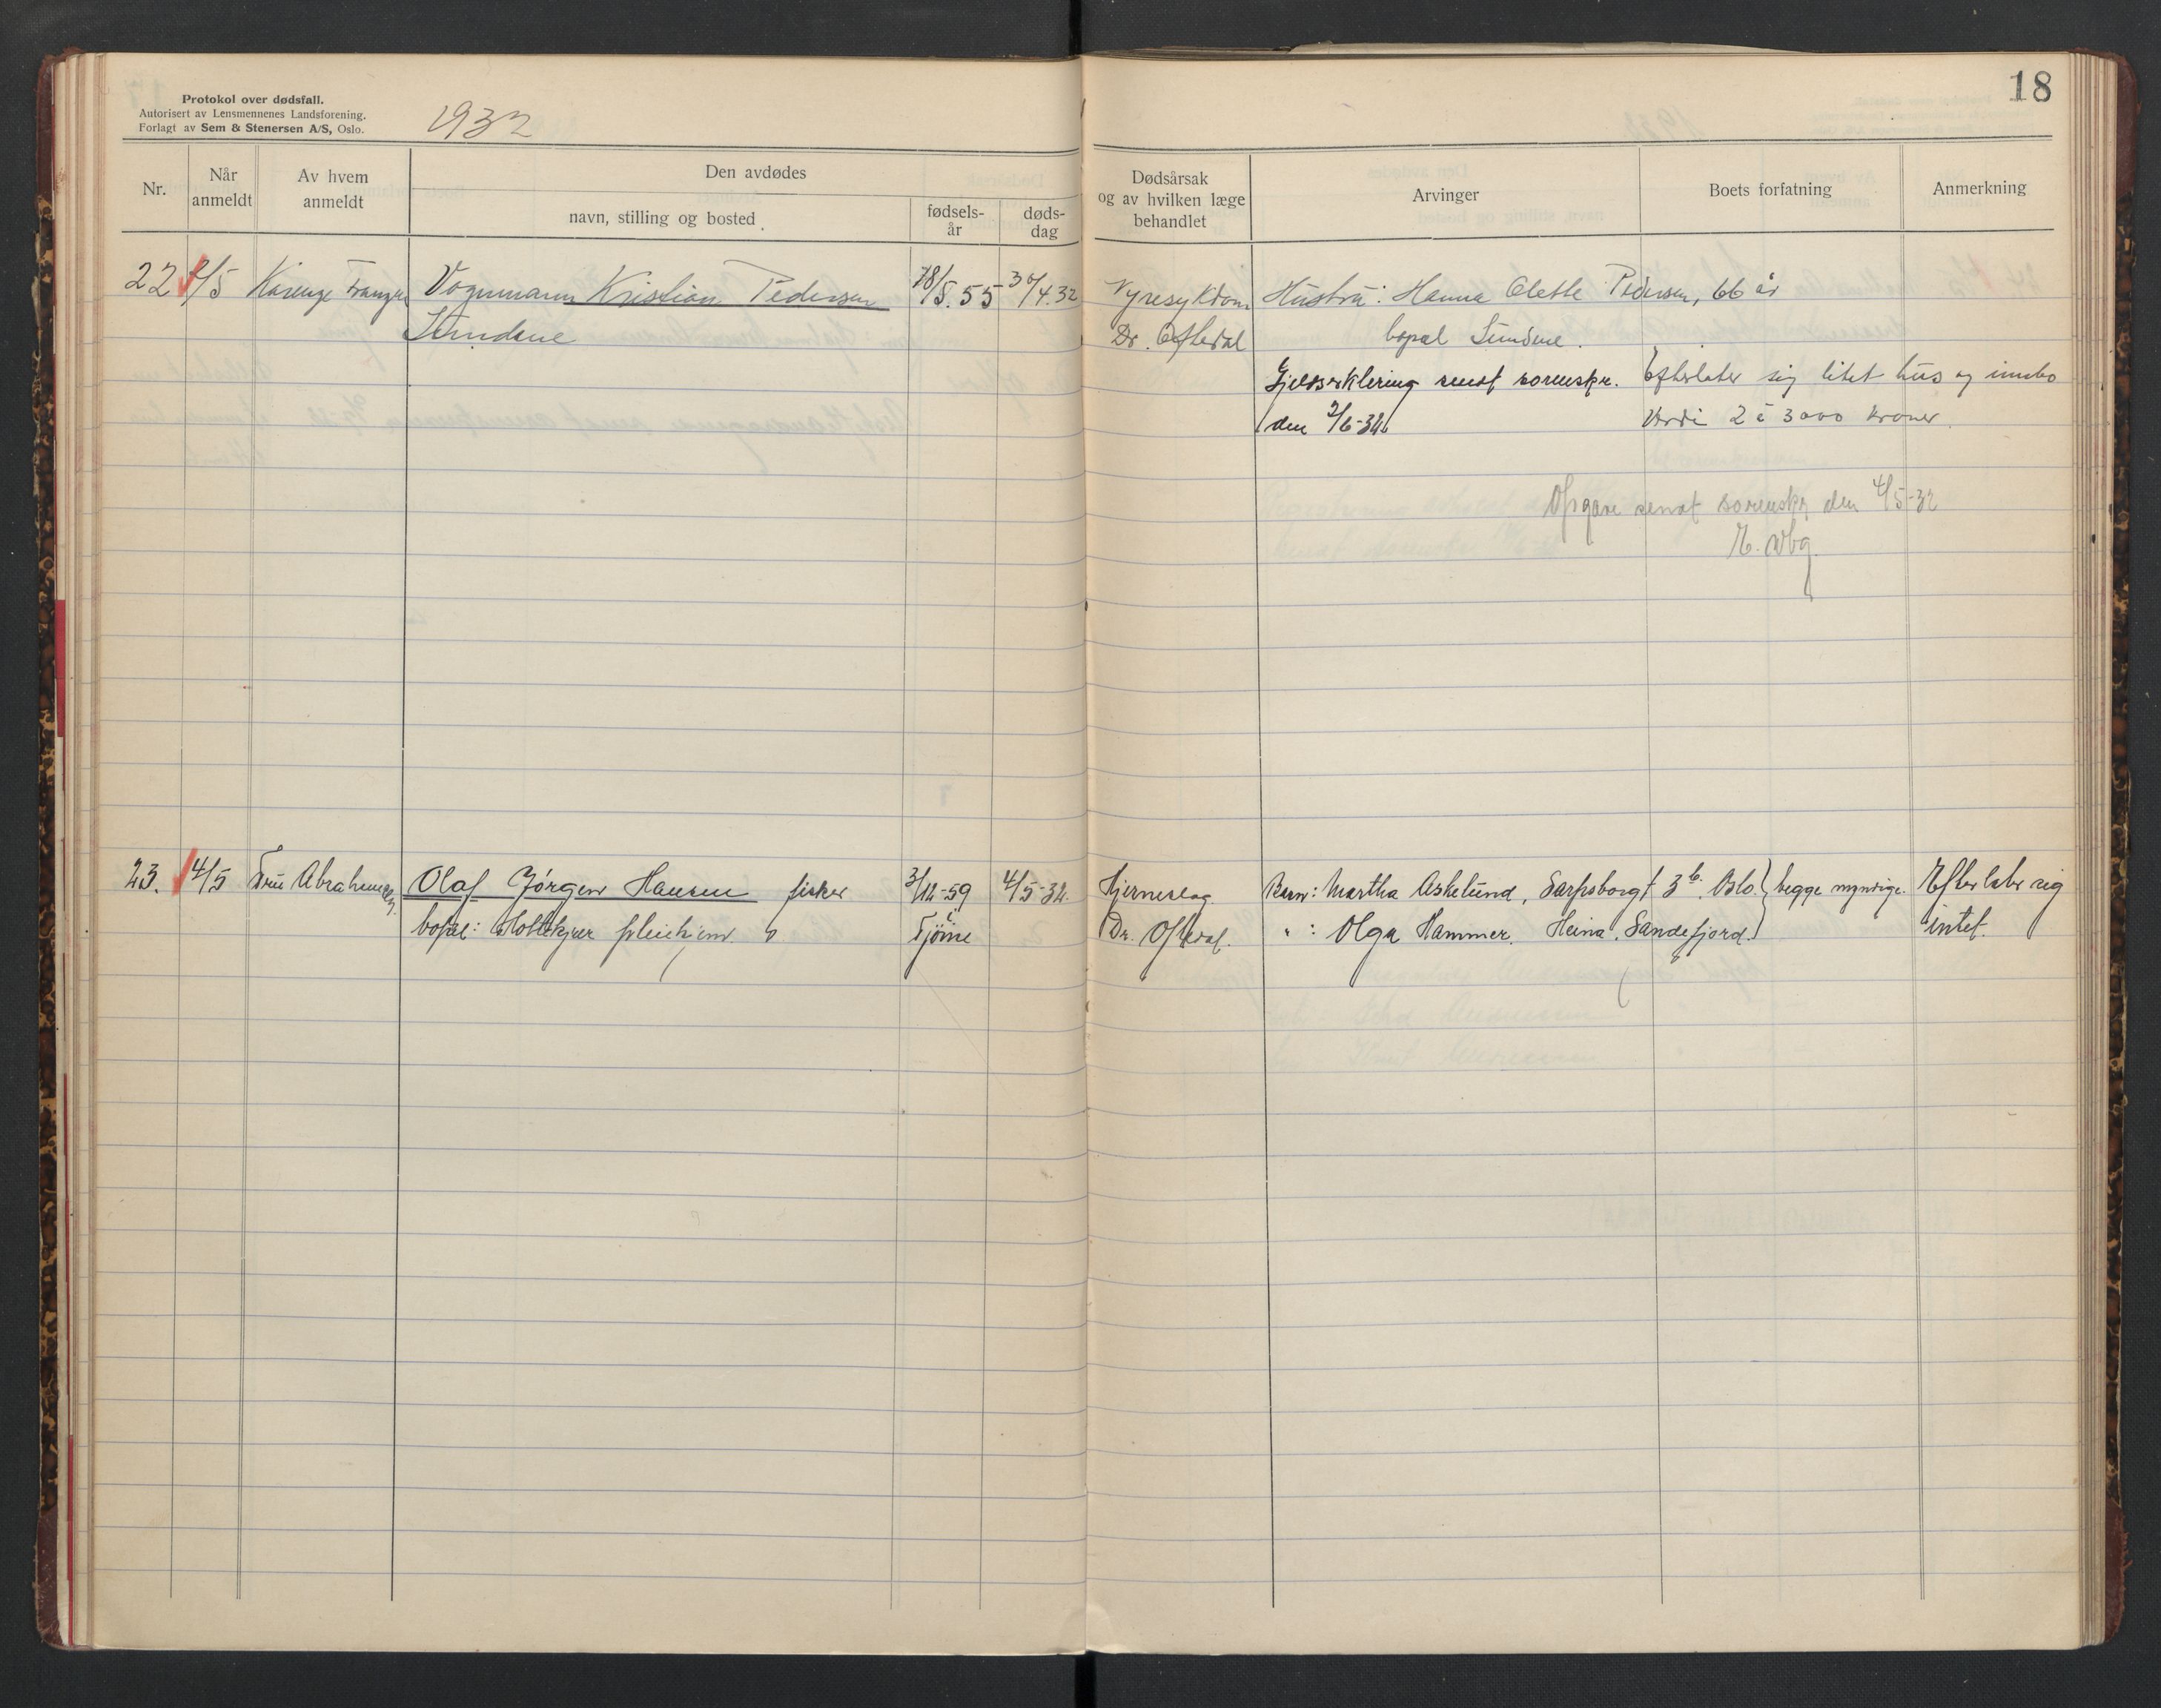 Protokol over dødsfall.
Autorisert av Lensmennenes Landsforening.
Forlagt av Sem & Stenersen A/S, Oslo.
1932
18
Nr.
Når anmeldt
Av hvem anmeldt
Den avdødes
navn, stilling og bosted
fødsels-år
døds-dag
Dødsårsak og av hvilken læge behandlet
Arvinger
Boets forfatning
Anmerkning
22 2/5 Vognmann Kristian Pedersen 18/5.55 30/4.32 Nyresykdom Hustru: Hanna Olette Pedersen, 66 år
Sundene Dr. Oftedal bopæl Sundene.
Gjeldserklering sendt sorenskr. Efterlater sig litet hus og innbo
den 2/6-32 Verdi 2 à 3000 kroner.
Opgave sendt sorenskr den 4/5-32
23. 4/5 Fru Abrahamsen Olaf Jørgen Hansen fisker 3/12-59 4/5-32. Hjerneslag Barn: Martha Askelund, Sarpsborggt 3 b. Oslo. begge myndige. Efterlater sig
bopæl: pleiehjem Tjöme Dr. Oftedal. " : Olga Hammer. Heina, Sandefjord. intet.